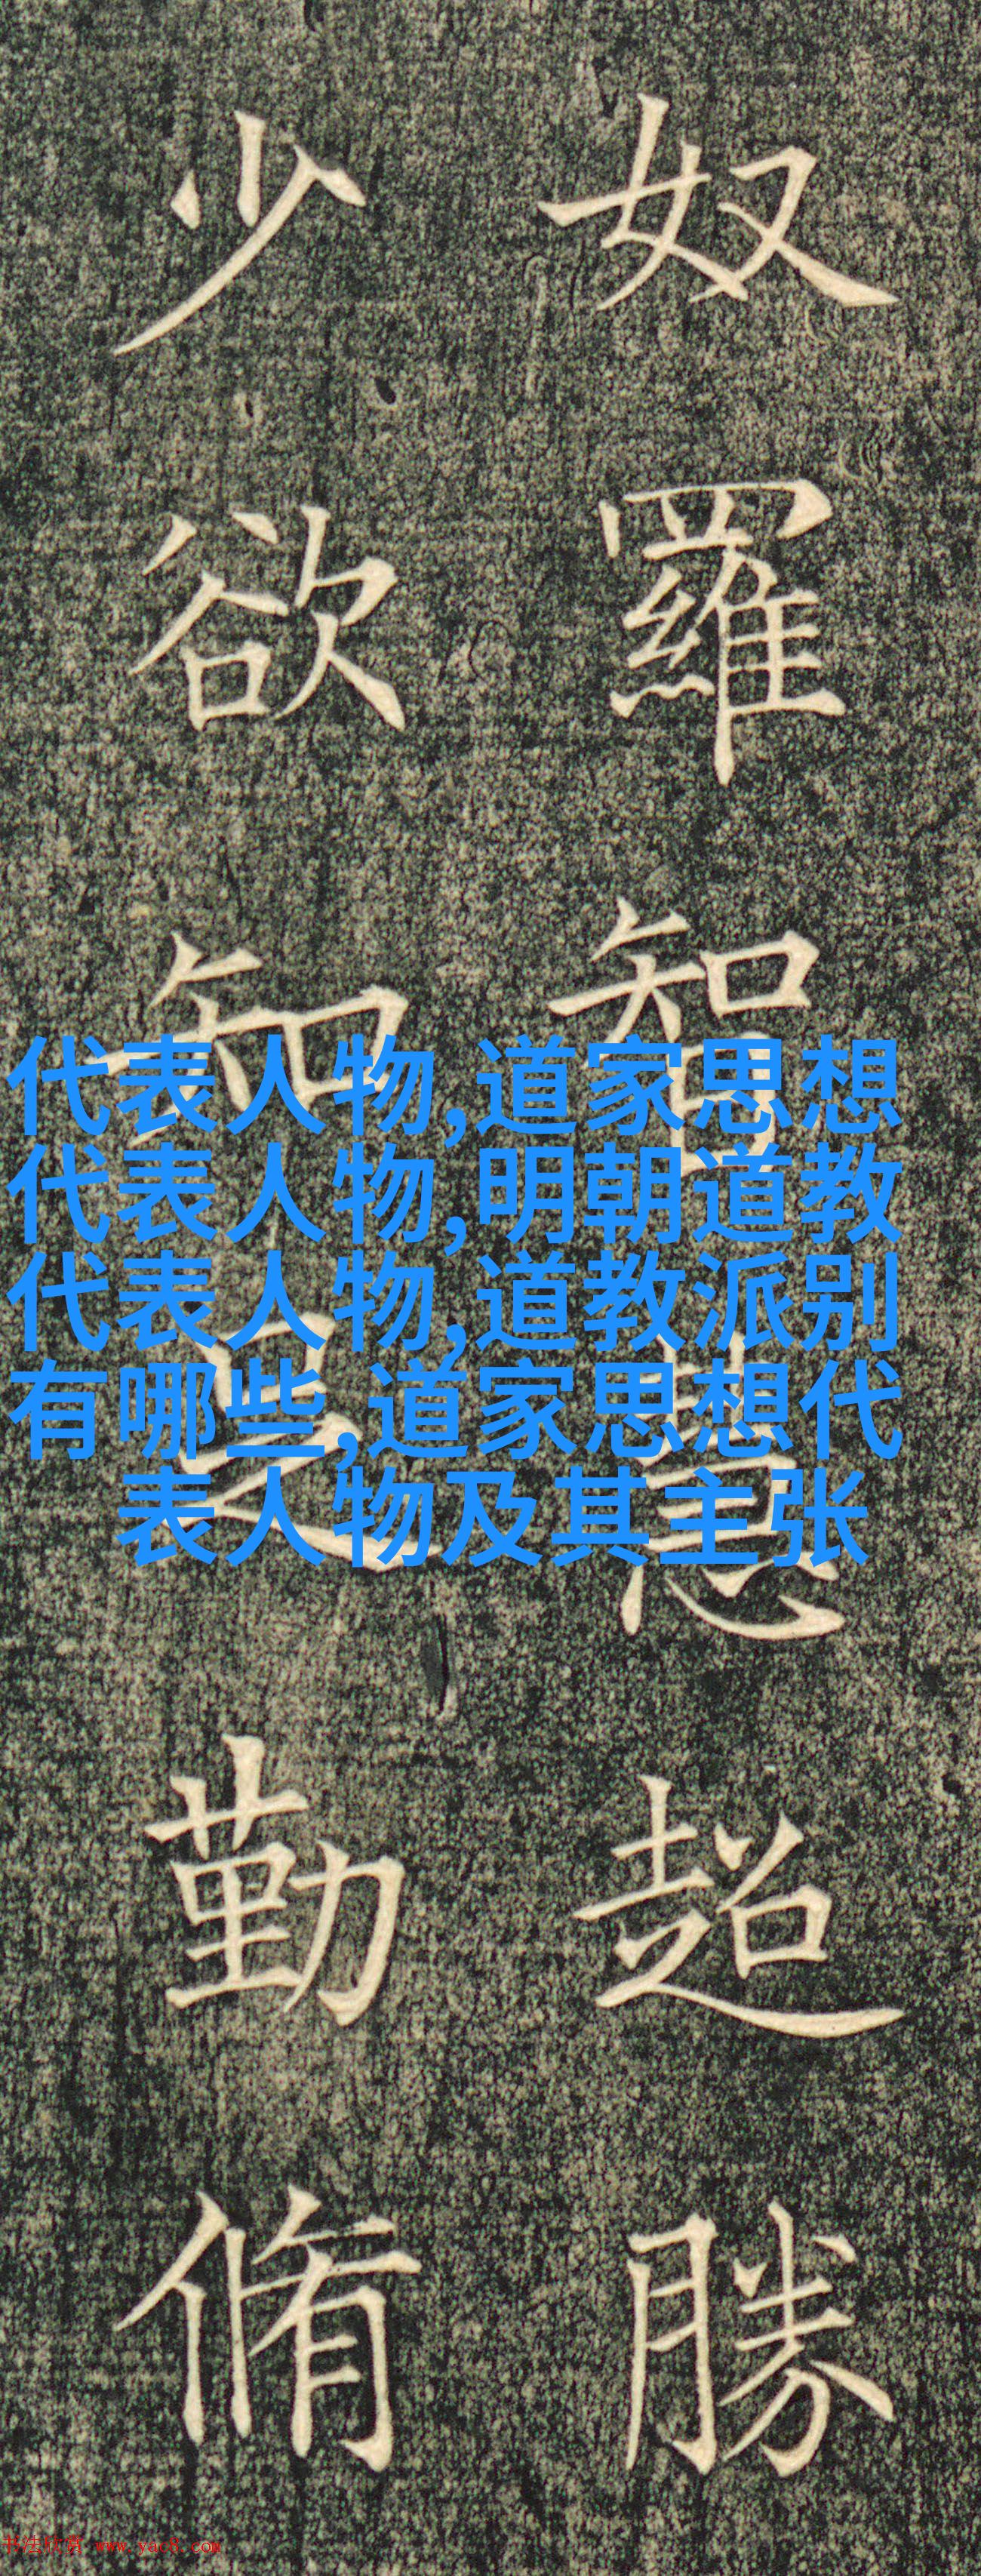 奴羅智慧超勝
少欲知足勤脩
代表人物,道家思想
代表人物,明朝道教
代表人物,道教派别
有哪些,道家思想代
表人物及其主张
书法欣赏 www.yac8.com